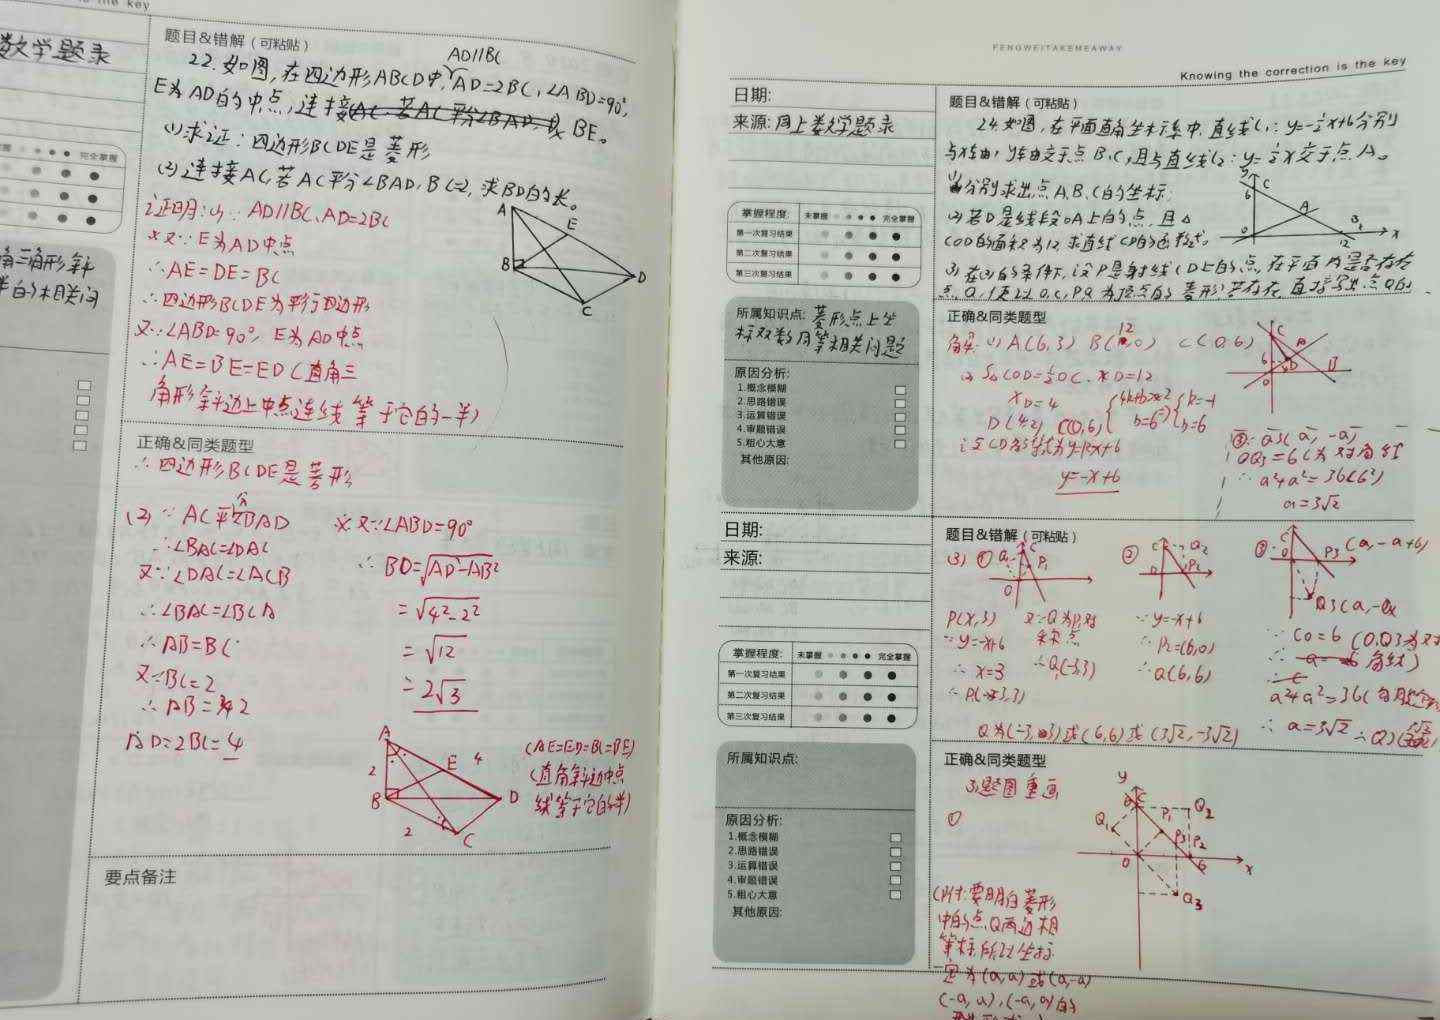 is the key
数学题录
完全掌握
角三角形斜
半的相关问
题目&错解（可粘贴）
AD//BC
22.如图,在四边形ABCD中,AD=2BC,∠ABD=90°,
E为AD的中点,连接BE。
(1)求证:四边形BCDE是菱形
(2)连接AC,若AC平分∠BAD,BC=2,求BD的长。
A
E
B
D
C
证明:(1)∵AD//BC、AD=2BC
又∵E为AD中点
∴AE=DE=BC
∴四边形BCDE为平行四边形
又∵∠ABD=90°,E为AD中点
∴AE=BE=ED(直角三
角形斜边上中点连线等于它的一半)
正确&同类题型
∴四边形BCDE是菱形
(2)∵AC平分∠BAD
∴∠BAC=∠DAC
又∵∠DAC=∠ACB
∴∠BAC=∠BCA
∴AB=BC
又∵BC=2
∴AB=2
AD=2BC=4
又∵∠ABD=90°
∴BD=√AD²-AB²
=√4²-2²
=√12
=2√3
A
E
4
2
B
D
2
C
(AE=ED=BC=BE)
(直角斜边中点
线等于它的一半)
要点备注
FENGWEITAKEMEAWAY
Knowing the correction is the key
日期:
来源:网上数学题录
掌握程度: 未掌握 完全掌握
第一次复习结果
第二次复习结果
第三次复习结果
所属知识点:菱形点上坐
标双数月等相关问题
原因分析:
1.概念模糊
2.思路错误
3.运算错误
4.审题错误
5.粗心大意
其他原因:
题目&错解（可粘贴）
24.如图,在平面直角坐标系中,直线l₁:y=-½x+6分别
与x轴,y轴交于点B、C,且与直线l₂:y=½x交于点A。
(1)分别求出点A、B、C的坐标;
(2)若D是线段OA上的点,且△
COD的面积为12,求直线CD的函数式。
(3)在(2)的条件下,设P是射线CD上的点,在平面内是否存在
点Q,使以O,C,P,Q为顶点的菱形?若存在,直接写出点Q的
正确&同类题型
解:(1)A(6,3) B(12,0) C(0,6)
(2)S△COD=½OC·xD=12
xD=4
D(4,2) C(0,6)
设CD的解析式为y=kx+6
y=-x+6
OQ3=6(为对角线
∴a²+a²=36(6²)
a=3√2
日期:
来源:
掌握程度: 未掌握 完全掌握
第一次复习结果
第二次复习结果
第三次复习结果
所属知识点:
原因分析:
1.概念模糊
2.思路错误
3.运算错误
4.审题错误
5.粗心大意
其他原因:
题目&错解（可粘贴）
(3)①
②
③
P3(a,-a+6)
P(x,3)
∵y=-x+6
∴x=3
∴P(3,3)
又∵Q为P对
称点
∴Q(-3,3)
∵y=-x+6
∴P2=(6,0)
∴Q(6,6)
∵CO=6
a²+a²=36
∴a=3√2
Q为(-3,3)或(6,6)或(3√2,-3√2)
正确&同类题型
3)题图重画
①
y
C
P1
Q1
Q2
P3
P2
O
6
x
Q3
(附:要明白菱形
中的点Q两边相
等标,所以坐标
一定为(a,a)或(a,-a)
(-a,a),(-a,a)的